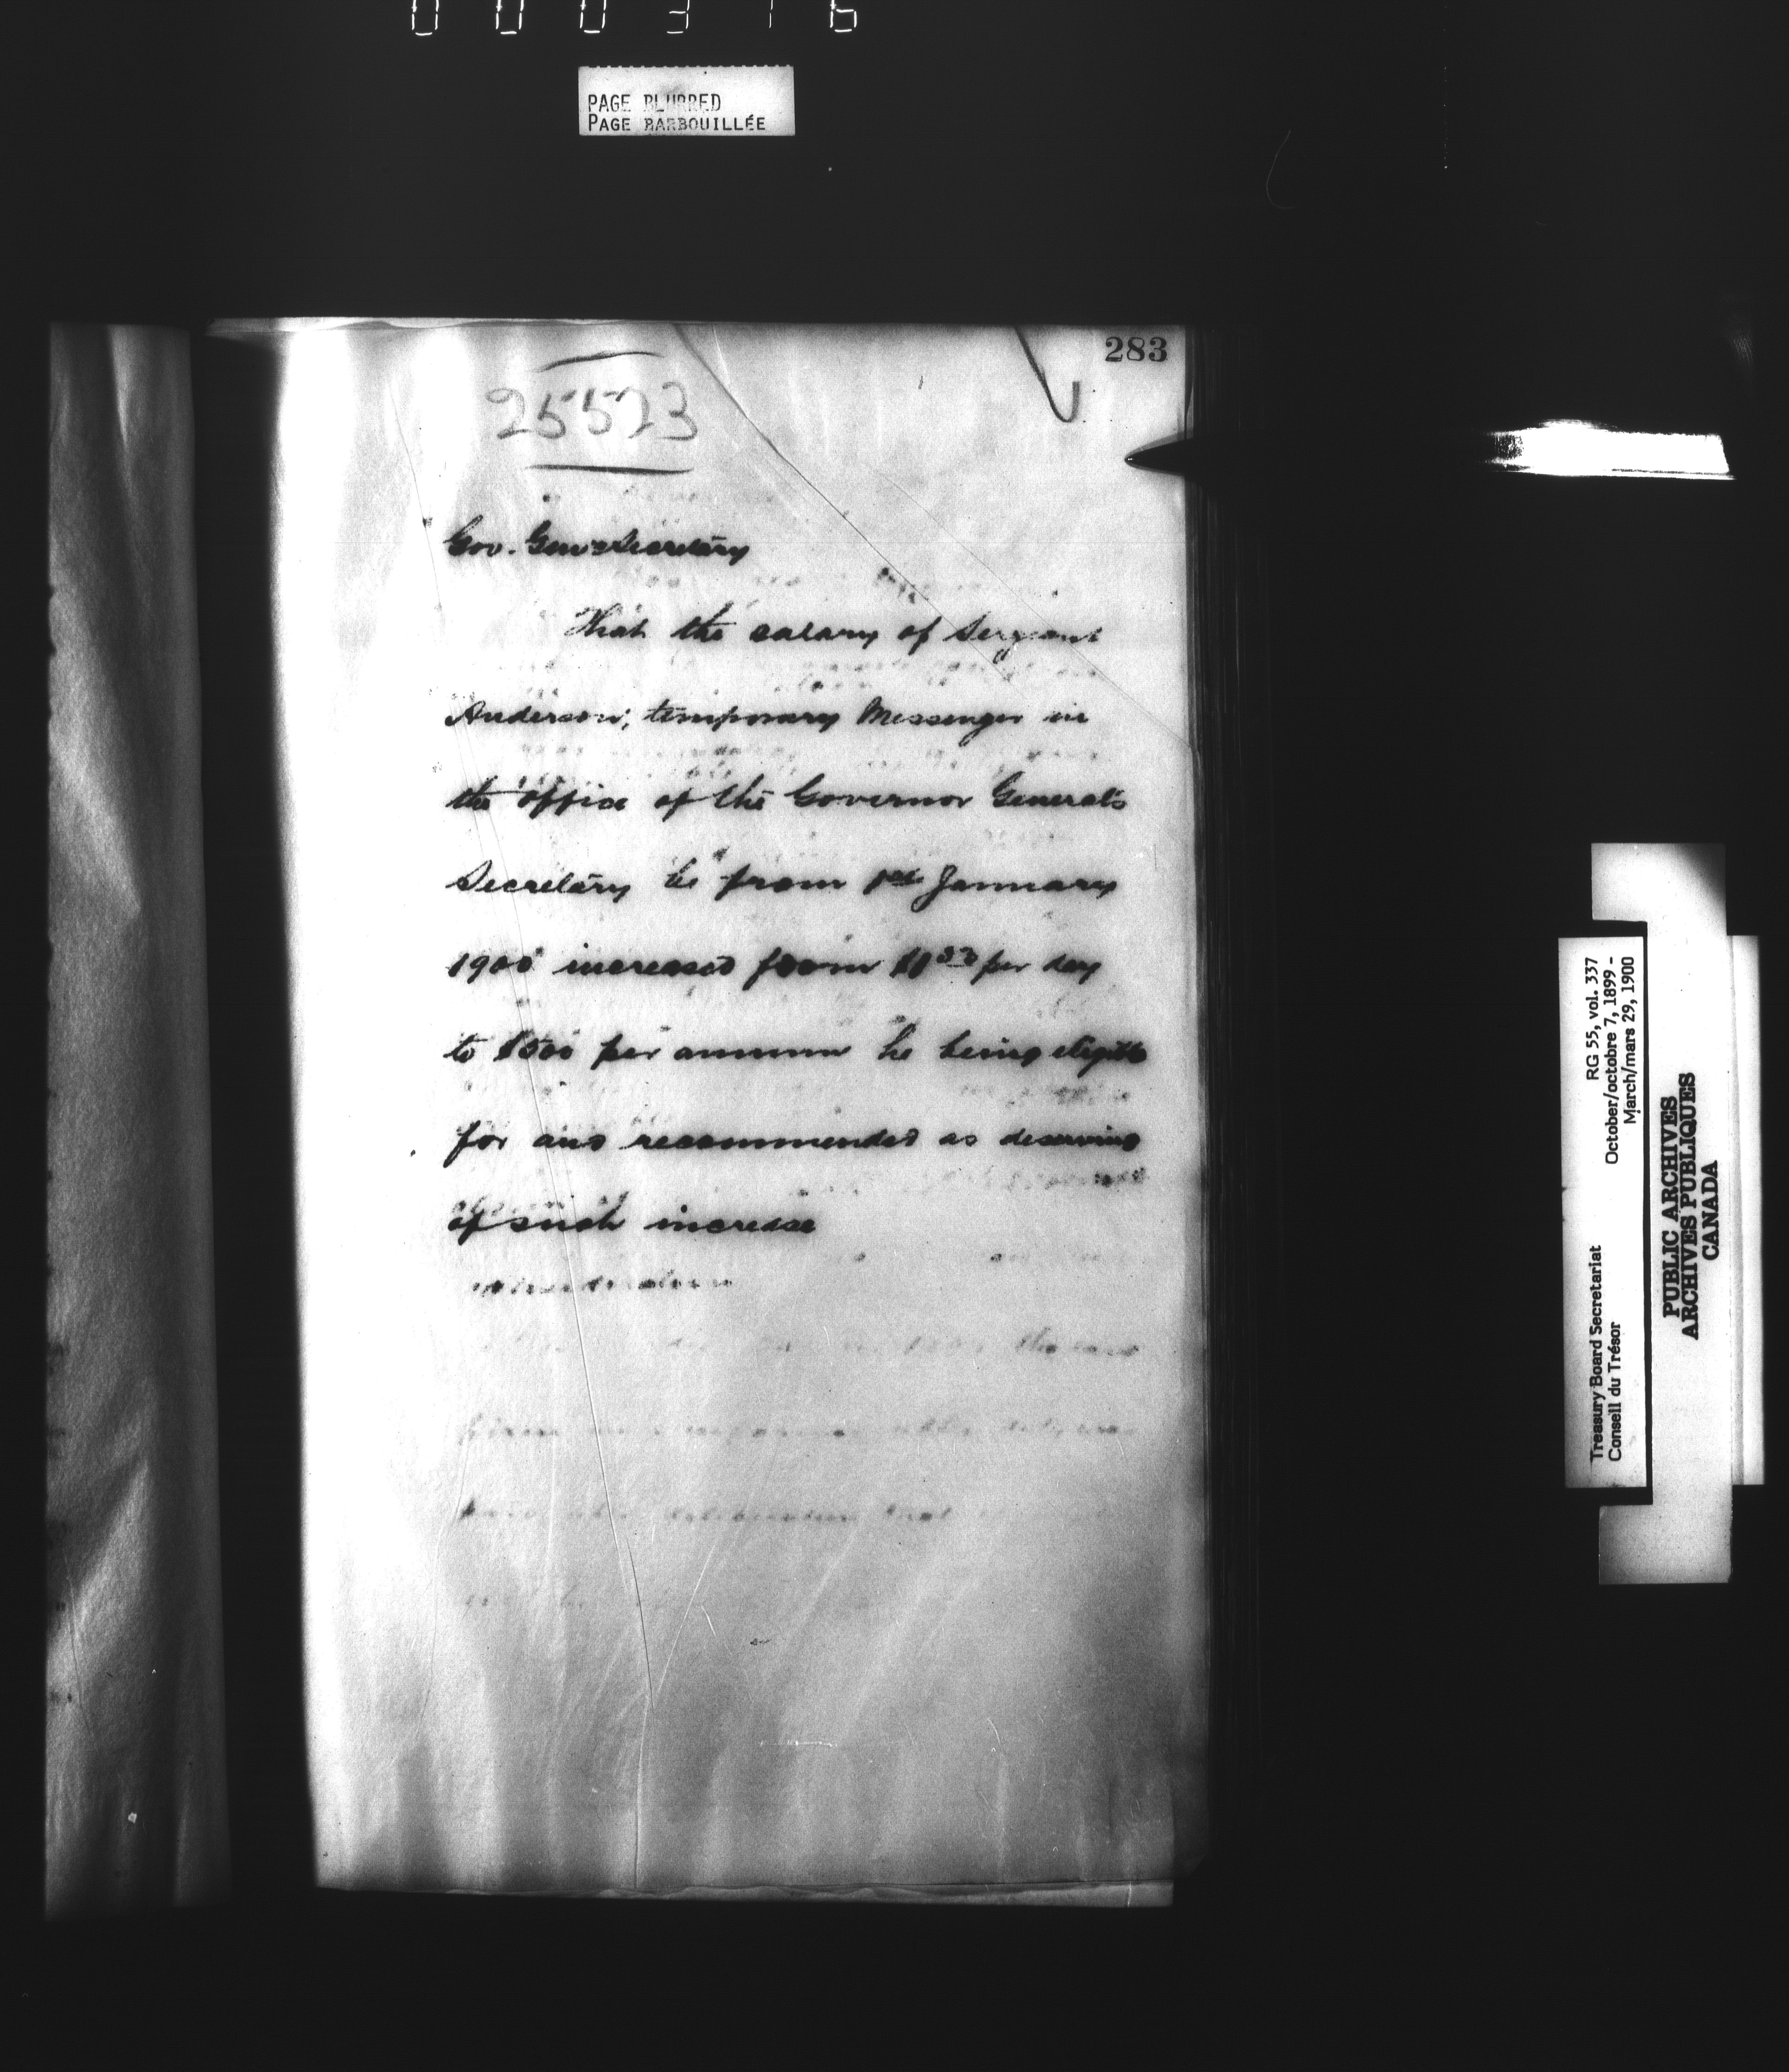 PAGE BLURRED
PAGE BARBOUILLÉE
283
25523
Gov. Gen's Secretary
That the salary of Sergeant
Anderson, temporary Messenger in
the office of the Governor General's
Secretary be from 1st January
1900 increased from per day
to $500 per annum he being eligible
for and recommended as deserving
of such increase
RG 55, vol. 337
October/octobre 7, 1899 -
March/mars 29, 1900
Treasury Board Secretariat
Conseil du Trésor
PUBLIC ARCHIVES
ARCHIVES PUBLIQUES
CANADA